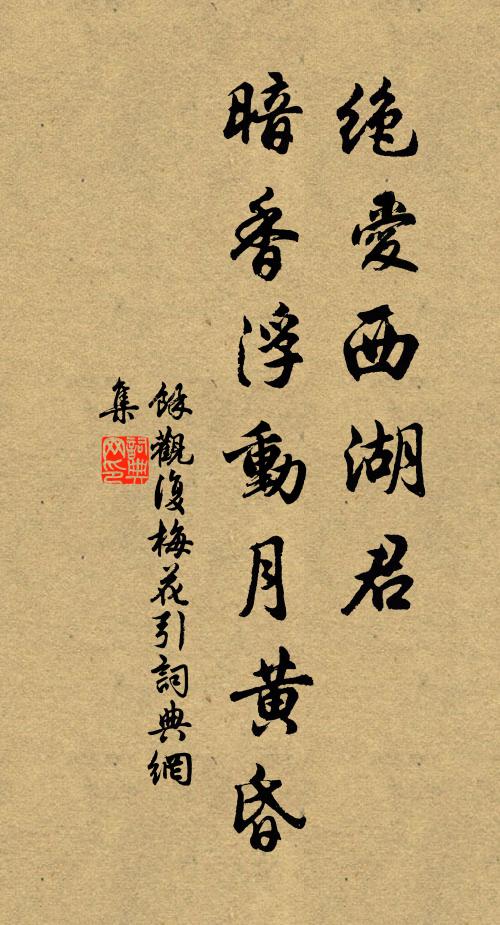 絶愛西湖君
暗香浮動月黄昏
餘觀復梅花引詞典網
集
詞典网印